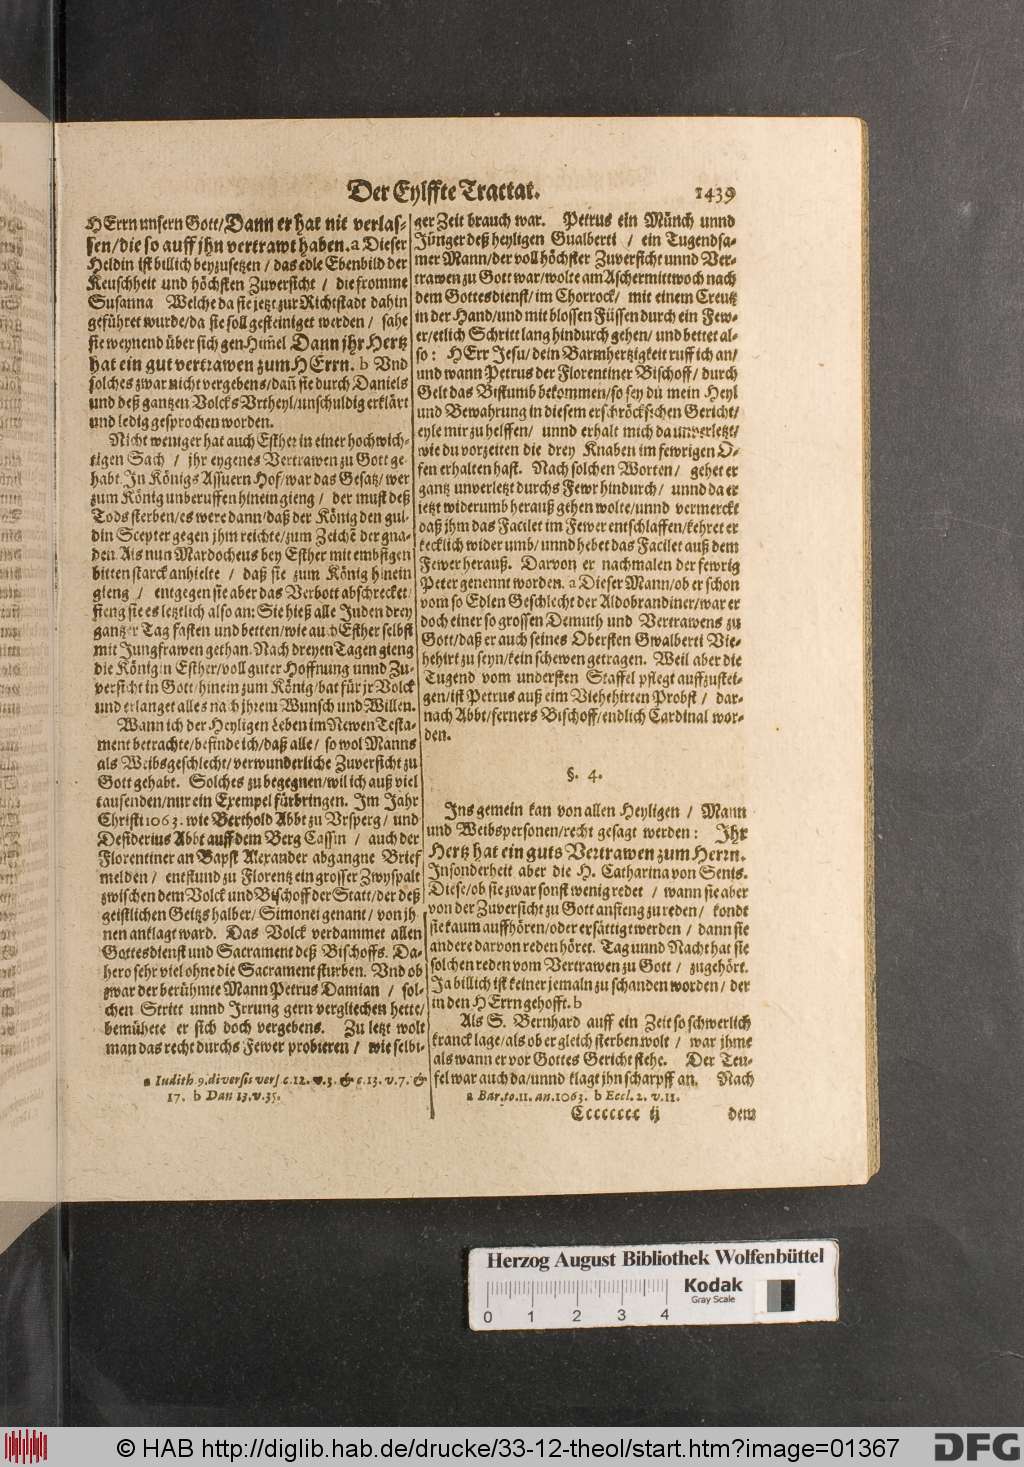 Der Eylffte Tractat.
1439
HErrn unsern Gott/ Dann er hat nit verlas-
sen/ die so auff jhn vertrawt haben. a Dieser
Heldin ist billich beyzusetzen / das edle Ebenbild der
Keuschheit und höchsten Zuversicht / die fromme
Susanna Welche da sie jetzt zur Richtstadt dahin
geführet wurde/ da sie soll gesteiniget werden / sahe
sie weynend über sich gen Him̃el Dann jhr Hertz
hat ein gut vertrawen zum HErrn. b Und
solches zwar nicht vergebens/ dañ sie durch Daniels
und deß gantzen Volcks Vrtheyl/ unschuldig erklärt
und ledig gesprochen worden.
Nicht weniger hat auch Esther in einer hochwich-
tigen Sach / jhr eygenes Vertrawen zu Gott ge
habt. In Königs Assuern Hof/ war das Gesatz/ wer
zum König unberuffen hinein gieng / der must deß
Tods sterben/ es were dann/ daß der König den gul-
din Scepter gegen jhm reichte/ zum Zeichẽ der gna-
den. Als nun Mardocheus bey Esther mit embsigen
bitten starck anhielte / daß sie zum König hinein
gieng / entgegen sie aber das Verbott abschrecket/
fieng sie es letztlich also an: Sie hieß alle Juden drey
gantzer Tag fasten und betten/ wie auch Esther selbst
mit Jungfrawen gethan. Nach dreyen Tagen gieng
die Königin Esther/ voll guter Hoffnung unnd Zu-
versicht in Gott/ hinein zum König/ bat für jr Volck
und erlanget alles nach jhrem Wunsch und Willen.
Wann ich der Heyligen Leben im Newen Testa-
ment betrachte/ befinde ich/ daß alle/ so wol Manns
als Weibsgeschlecht/ verwunderliche Zuversicht zu
Gott gehabt. Solches zu begegnen/ wil ich auß viel
tausenden/ nur ein Exempel fürbringen. Im Jahr
Christi 1063. wie Berthold Abbt zu Vrsperg / und
Desiderius Abbt auff dem Berg Cassin / auch der
Florentiner an Bapst Alexander abgangne Brief
melden / entstund zu Florentz ein grosser Zwyspalt
zwischen dem Volck und Bischoff der Statt/ der deß
geistlichen Geitzs halber/ Simonei genant/ von jh
nen anklagt ward. Das Volck verdammet allen
Gottesdienst und Sacrament deß Bischoffs. Da-
hero sehr viel ohne die Sacrament sturben. Und ob
zwar der berühmte Mann Petrus Damian / sol-
chen Stritt unnd Irrung gern vergliechen hette/
bemühete er sich doch vergebens. Zu letzt wolt
man das recht durchs Fewer probieren / wie selbi-
a Iudith 9. diversis vers c. 12. v. 3. & c. 13. v. 7. &
17. b Dan 13. v. 35.
ger Zeit brauch war. Petrus ein Münch unnd
Jünger deß heyligen Gualberti / ein Tugendsa-
mer Mann/ der voll höchster Zuversicht unnd Ver-
trawen zu Gott war/ wolte am Aschermittwoch nach
dem Gottesdienst/ im Chorrock/ mit einem Creutz
in der Hand/ und mit blossen Füssen durch ein Few-
er/ etlich Schritt lang hindurch gehen/ und bettet al-
so: HErr Jesu/ dein Barmhertzigkeit ruff ich an/
und wann Petrus der Florentiner Bischoff/ durch
Gelt das Bistumb bekommen/ so sey du mein Heyl
und Bewahrung in diesem erschröckschen Gericht/
eyle mir zu helffen/ unnd erhalt mich da unverletzt/
wie du vorzeiten die drey Knaben im fewrigen O-
fen erhalten hast. Nach solchen Worten/ gehet er
gantz unverletzt durchs Fewr hindurch/ unnd da er
jetzt widerumb herauß gehen wolte/ unnd vermerckt
daß jhm das Facilet im Fewer entschlaffen/ kehret er
kecklich widerumb/ unnd hebet das Facilet auß dem
Fewer herauß. Darvon er nachmalen der fewrig
Peter genennt worden. a Dieser Mann/ ob er schon
vom so Edlen Geschlecht der Aldobrandiner/ war er
doch einer so grossen Demuth und Vertrawens zu
Gott/ daß er auch seines Obersten Gwalberti Vie-
hehirt zu seyn/ kein schewen getragen. Weil aber die
Tugend vom understen Staffel pflegt auffzustei-
gen/ ist Petrus auß eim Viehehirten Probst / dar-
nach Abbt/ ferners Bischoff/ endlich Cardinal wor-
den.
§. 4.
Ins gemein kan von allen Heyligen / Mann
und Weibspersonen/ recht gesagt werden: Ihr
Hertz hat ein guts Vertrawen zum Herrn.
Insonderheit aber die H. Catharina von Senis.
Diese/ ob sie zwar sonst wenig redet / wann sie aber
von der Zuversicht zu Gott anfieng zu reden / kondt
sie kaum auffhören/ oder ersättigt werden / dann sie
andere darvon reden höret. Tag unnd Nacht hat sie
solchen reden vom Vertrawen zu Gott / zugehört.
Ja billich ist keiner jemaln zu schanden worden/ der
in den HErrn gehofft. b
Als S. Bernhard auff ein Zeit so schwerlich
kranck lage/ als ob er gleich sterben wolt / war jhme
als wann er vor Gottes Gericht stehe. Der Teu-
fel war auch da/ unnd klagt jhn scharpff an. Nach
a Bar. to. 11. an. 1063. b Eccl. 2. v. 11.
Cccccccc ij
dem
Herzog August Bibliothek Wolfenbüttel
Kodak
Gray Scale
0 1 2 3 4
© HAB http://diglib.hab.de/drucke/33-12-theol/start.htm?image=01367
DFG